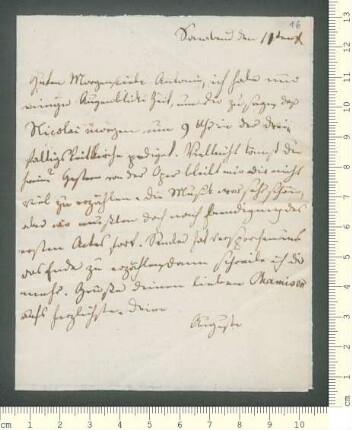 16
Sonnabend den 11ten
Guten Morgen liebe Antonie, ich habe nur
wenige Augenblicke Zeit, um dir zu sagen daß
Nicolai morgen um 9 Uhr in der Drei
faltigkeitskirche predigt. Vielleicht kannst du
Gestern von der Oper bleibt mir nicht
viel zu erzählen, die Musik war sehr schön,
aber wir mußten doch nach Beendigung des
ersten Actes fort. hat versprochen uns
das Ende zu erzählen, dann schreibe ich dir
mehr. Grüße deinen lieben Chamisso
aufs herzlichste. deine
Auguste